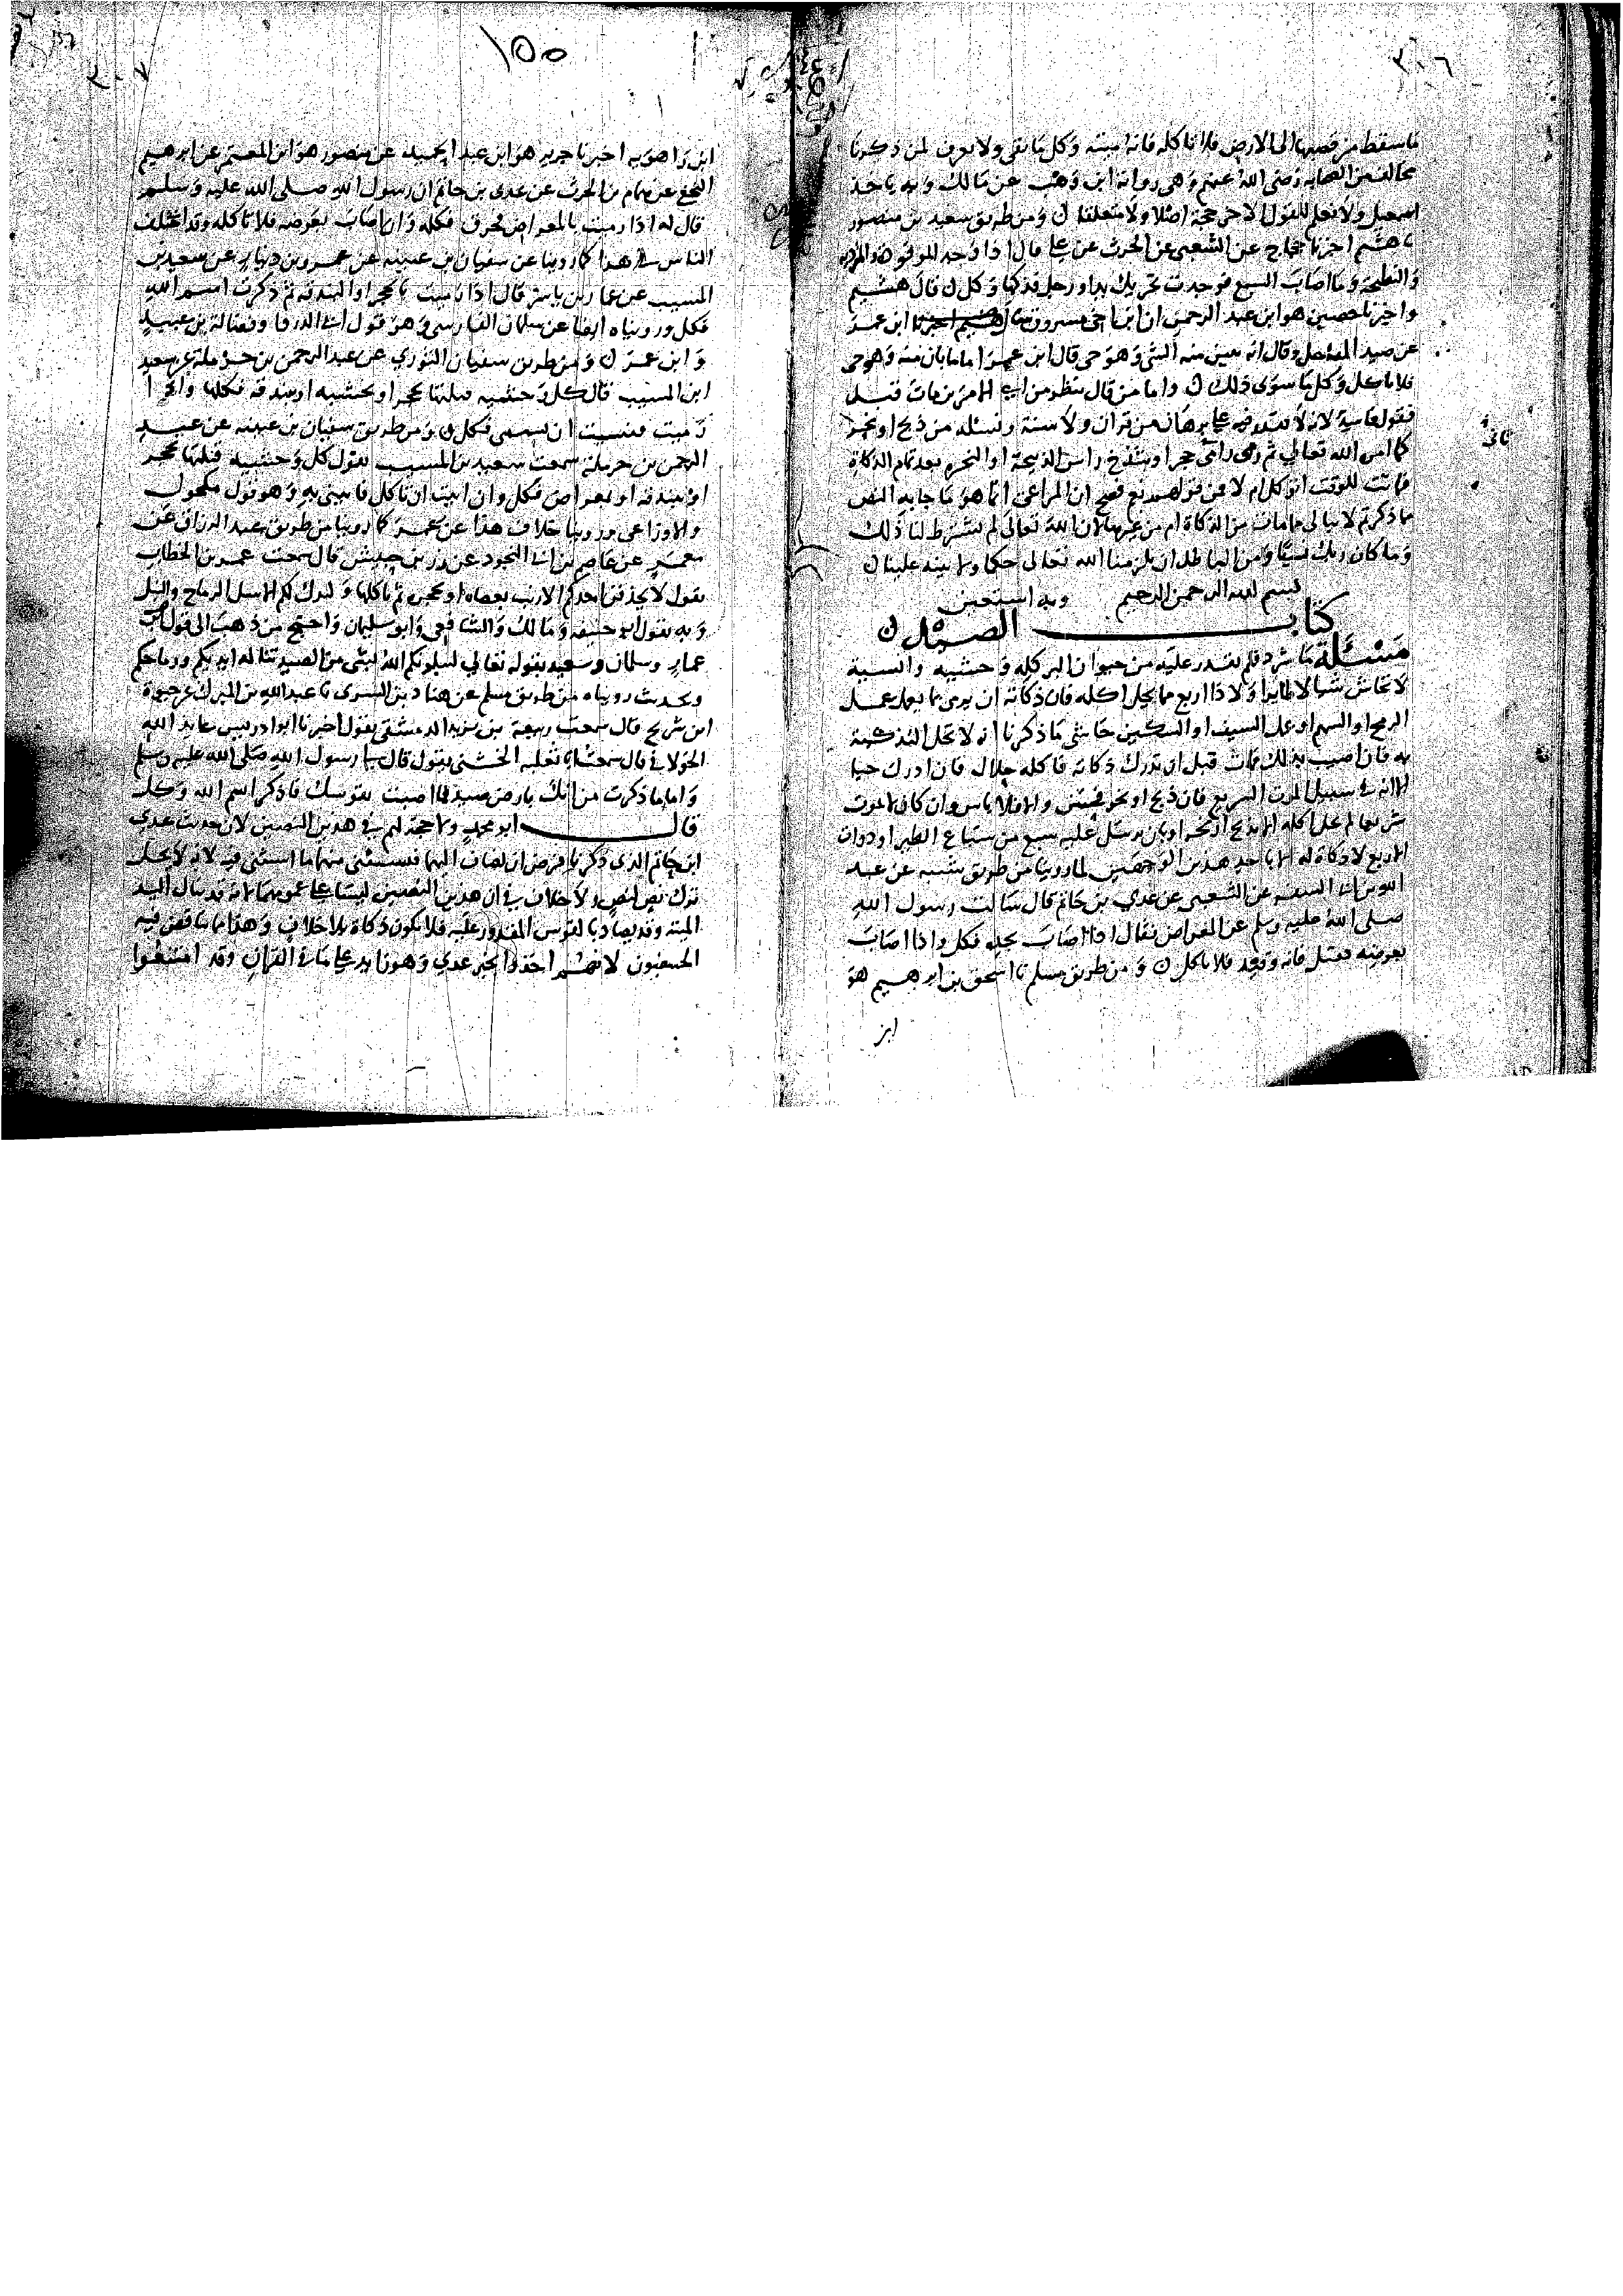 ٢٠٦
ما سقط من قصبها الى الارض فلا تاكله فانه ميتة وكل ما بقى ولا نعرف لمن ذكرنا
مخالف من الصحابه رضى الله عنهم وهى رواية ابن وهب عن مالك وبه ياخذ
اسمعيل ولا نعلم للقول الاخر حجة اصلا ولا متعلقا ن ومن طريق سعيد بن منصور
نا هشيم اخبرنا حجاج عن الشعبى عن الحرث عن على قال اذا وجد الموقوذة والمتردية
والنطيحة وما اصاب السبع فوجدت تحريك يد او رجل فذكها وكل ن قال هشيم
واخبرنا حصين هو ابن عبد الرحمن ان ابن اخى مسروق سال ابن عمر
عن صيد المفصل وقال انه يبين منه الشى وهو حى قال ابن عمر اما ما بان منه وهو حى
فلا تاكل وكل ما سوى ذلك ن واما من قال ينظر من اى الامرين مات قبل
فقول فاسد لانه لا يقدر فيه على برهان من قران ولا سنة ونسئله من ذبح او نحر
كما امر الله تعالى ثم رمى رام حجرا وشدخ راس الذبيحة او النحر بعد تمام الذكاة
فماتت للوقت اتوكل ام لا فمن قولهم نعم فصح ان المراعى انما هو ما جا به النص
ما ذكرتم لا نبالى مما مات من الذكاة ام من غيرها لان الله تعالى لم يشترط لنا ذلك
وما كان ربك نسيا ومن الباطل ان يلزمنا الله تعالى حكما ولا يبينه علينا ن
بسم الله الرحمن الرحيم وبه استعين
كتاب الصيد ن
مسئلة ما شرد فلم يقدر عليه من حيوان البر كله وحشيه وانسيه
لا تحاش شيا لا طايرا ولا ذا اربع مما يحل اكله فان ذكاته ان يرمى بما يعمل عمل
الرمح او السهم او عمل السيف او السكين حاشى ما ذكرنا انه لا تحل التذكية
به فان اصيب بذلك فمات قبل ان تدرك ذكاته فاكله حلال فان ادرك حيا
الا انه فى سبيل الموت السريع فان ذبح او نحر فحسن والا فلا باس وان كان لا يموت
سريعا لم يحل اكله الا بذبح او نحر او بان يرسل عليه سبع من سباع الطير او ذوات
الاربع لا ذكاة له الا باحد هذين الوجهين لما روينا من طريق شعبة عن عبد
الله بن ابى السفر عن الشعبى عن عدي بن حاتم قال سالت رسول الله
صلى الله عليه وسلم عن المعراض فقال اذا اصاب بحده فكل واذا اصاب
بعرضه فقتل فانه وقيذ فلا تاكل ن ومن طريق مسلم نا اسحق بن ابرهيم هو
ابن
٢٠٧
١٥٥
ابن راهويه اخبرنا جرير هو ابن عبد الحميد عن منصور هو ابن المعتمر عن ابرهيم
النخعى عن همام بن الحرث عن عدى بن حاتم ان رسول الله صلى الله عليه وسلم
قال له اذا رميت بالمعراض فخرق فكله وان اصاب بعرضه فلا تاكله وقد اختلف
الناس فى هذا كما روينا عن سفيان بن عيينه عن عمرو بن دينار عن سعيد بن
المسيب عن عمار بن ياسر قال اذا رميت بالحجر او البندقه ثم ذكرت اسم الله
فكل وروينا ه ايضا عن سلمان الفارسى وهو قول ابى الدردا وفضالة بن عبيد
وابن عمر ن ومن طريق سفيان الثوري عن عبد الرحمن بن حرملة عن سعيد
ابن المسيب قال كل وحشيه قتلتها بحجر او بخشبه او ببندقه فكلها واذا
رميت فنسيت ان تسمى فكل ن ومن طريق سفيان بن عيينه عن عبد
الرحمن بن حرملة سمعت سعيد بن المسيب يقول كل وحشية قتلتها بحجر
او ببندقه او بمعراض فكل وان ابيت ان تاكل فاتنى به وهو قول مكحول
والاوزاعى وروينا خلاف هذا عن عمر كما روينا من طريق عبد الرزاق عن
معمر عن عاصم بن ابى النجود عن زر بن حبيش قال سمعت عمر بن الخطاب
يقول لا يحذفن احدكم الارنب بعصاه او بحجر ثم ياكلها وليذك لكم الاسل الرماح والنبل
وبه يقول ابو حنيفة ومالك والشافعى وابو سليمان واحتج من ذهب الى قول
عمار وسلمان وسعيد بقوله تعالى ليبلونكم الله بشى من الصيد تناله ايديكم ورماحكم
وبحديث رويناه من طريق مسلم عن هناد بن السرى نا عبد الله بن المبرك عن حيوة
ابن شريح قال سمعت ربيعة بن يزيد الدمشقى يقول اخبرنا ابو ادريس عايذ الله
الخولانى قال سمعت ابا ثعلبه الخشنى يقول قال يا رسول الله صلى الله عليه وسلم
واما ما ذكرت من انك بارض صيد فما اصبت بقوسك فاذكر اسم الله وكل
قال ابو محمد ولا حجة لهم فى هذين النصين لان حديث عدي
ابن حاتم الذى ذكرنا فرض ان يضاف اليهما فيستثنى منهما ما استثنى فيه لانه لا يحل
ترك نص لنص ولا خلاف فى ان هذين النصين ليسا على عمومهما لانه قد تنال اليد
الميتة وقد يصاد بالقوس المقدور عليه فلا يكون ذكاة بلا خلاف وهذا مما تناقض فيه
الحنفيون لانهم اخذوا بخبر عدي وهو زايد على ما فى القران وقد امتنعوا